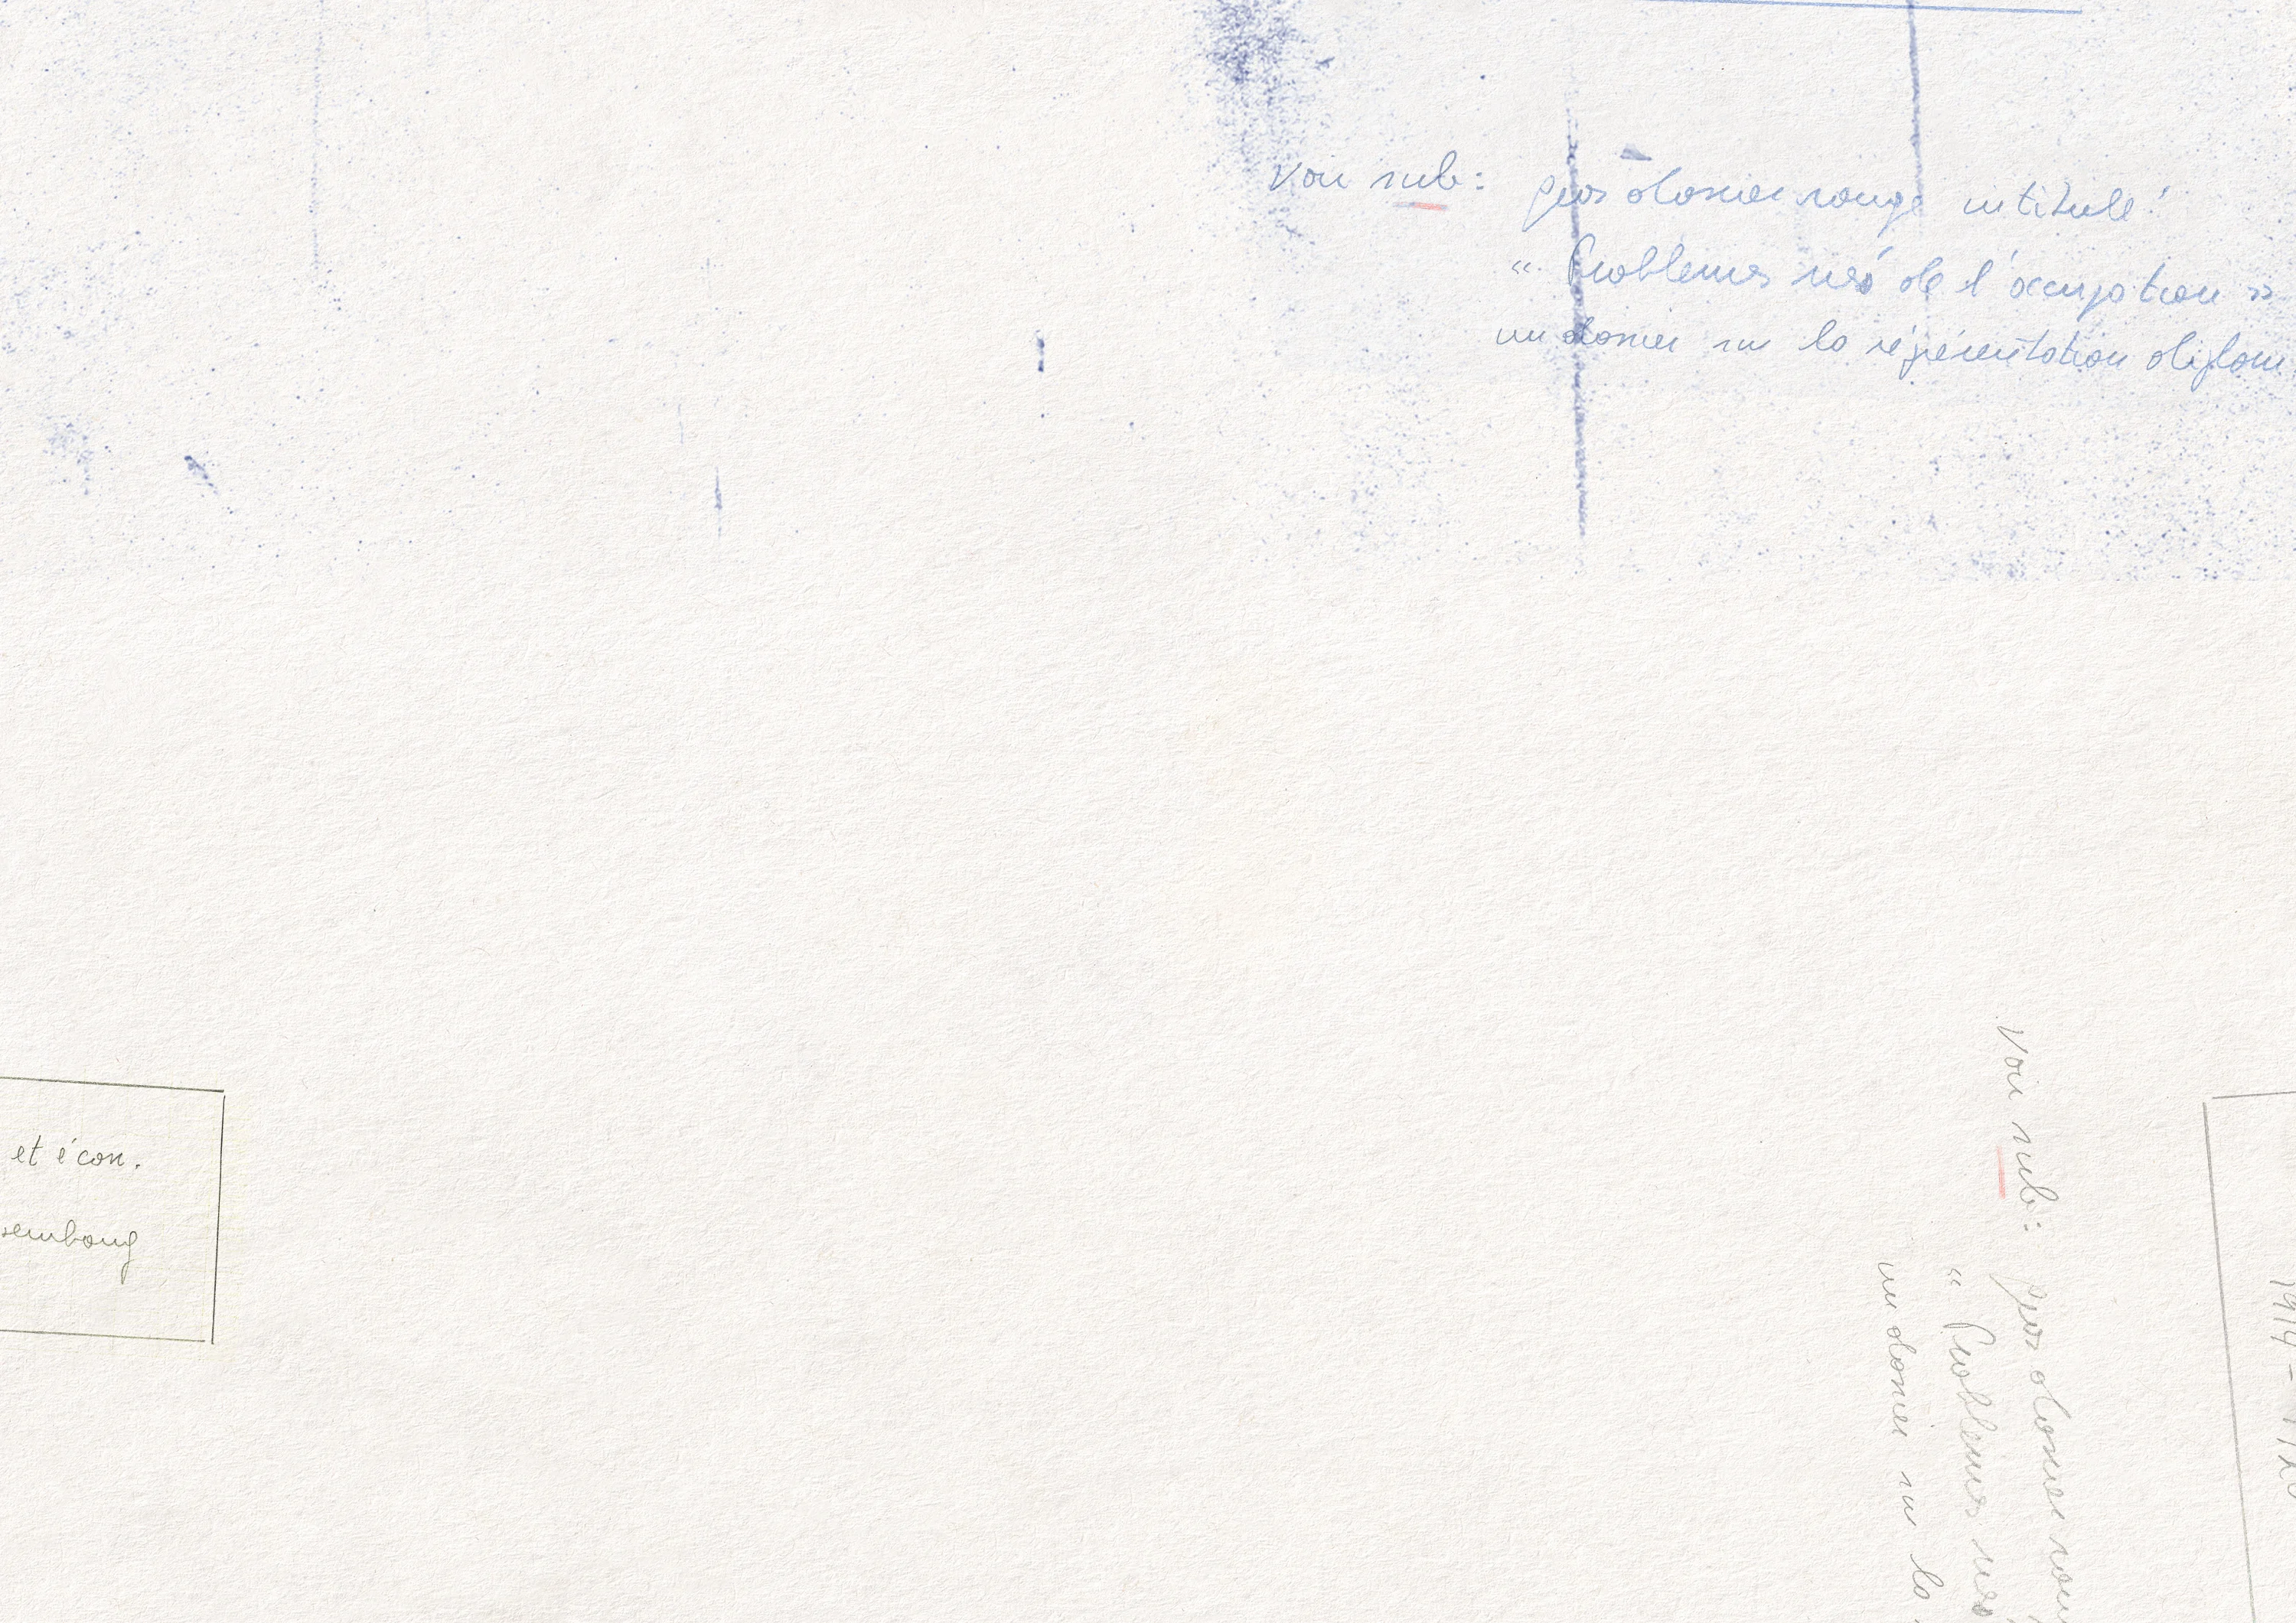 Voir sub: gros dossier rouge intitulé:
" Problèmes nés de l'occupation »
un dossier sur la représentation diplom
et écon.
xembourg
Voir sub: gros dossier rou
" Problèmes nés
un dossier sur la
1914 -